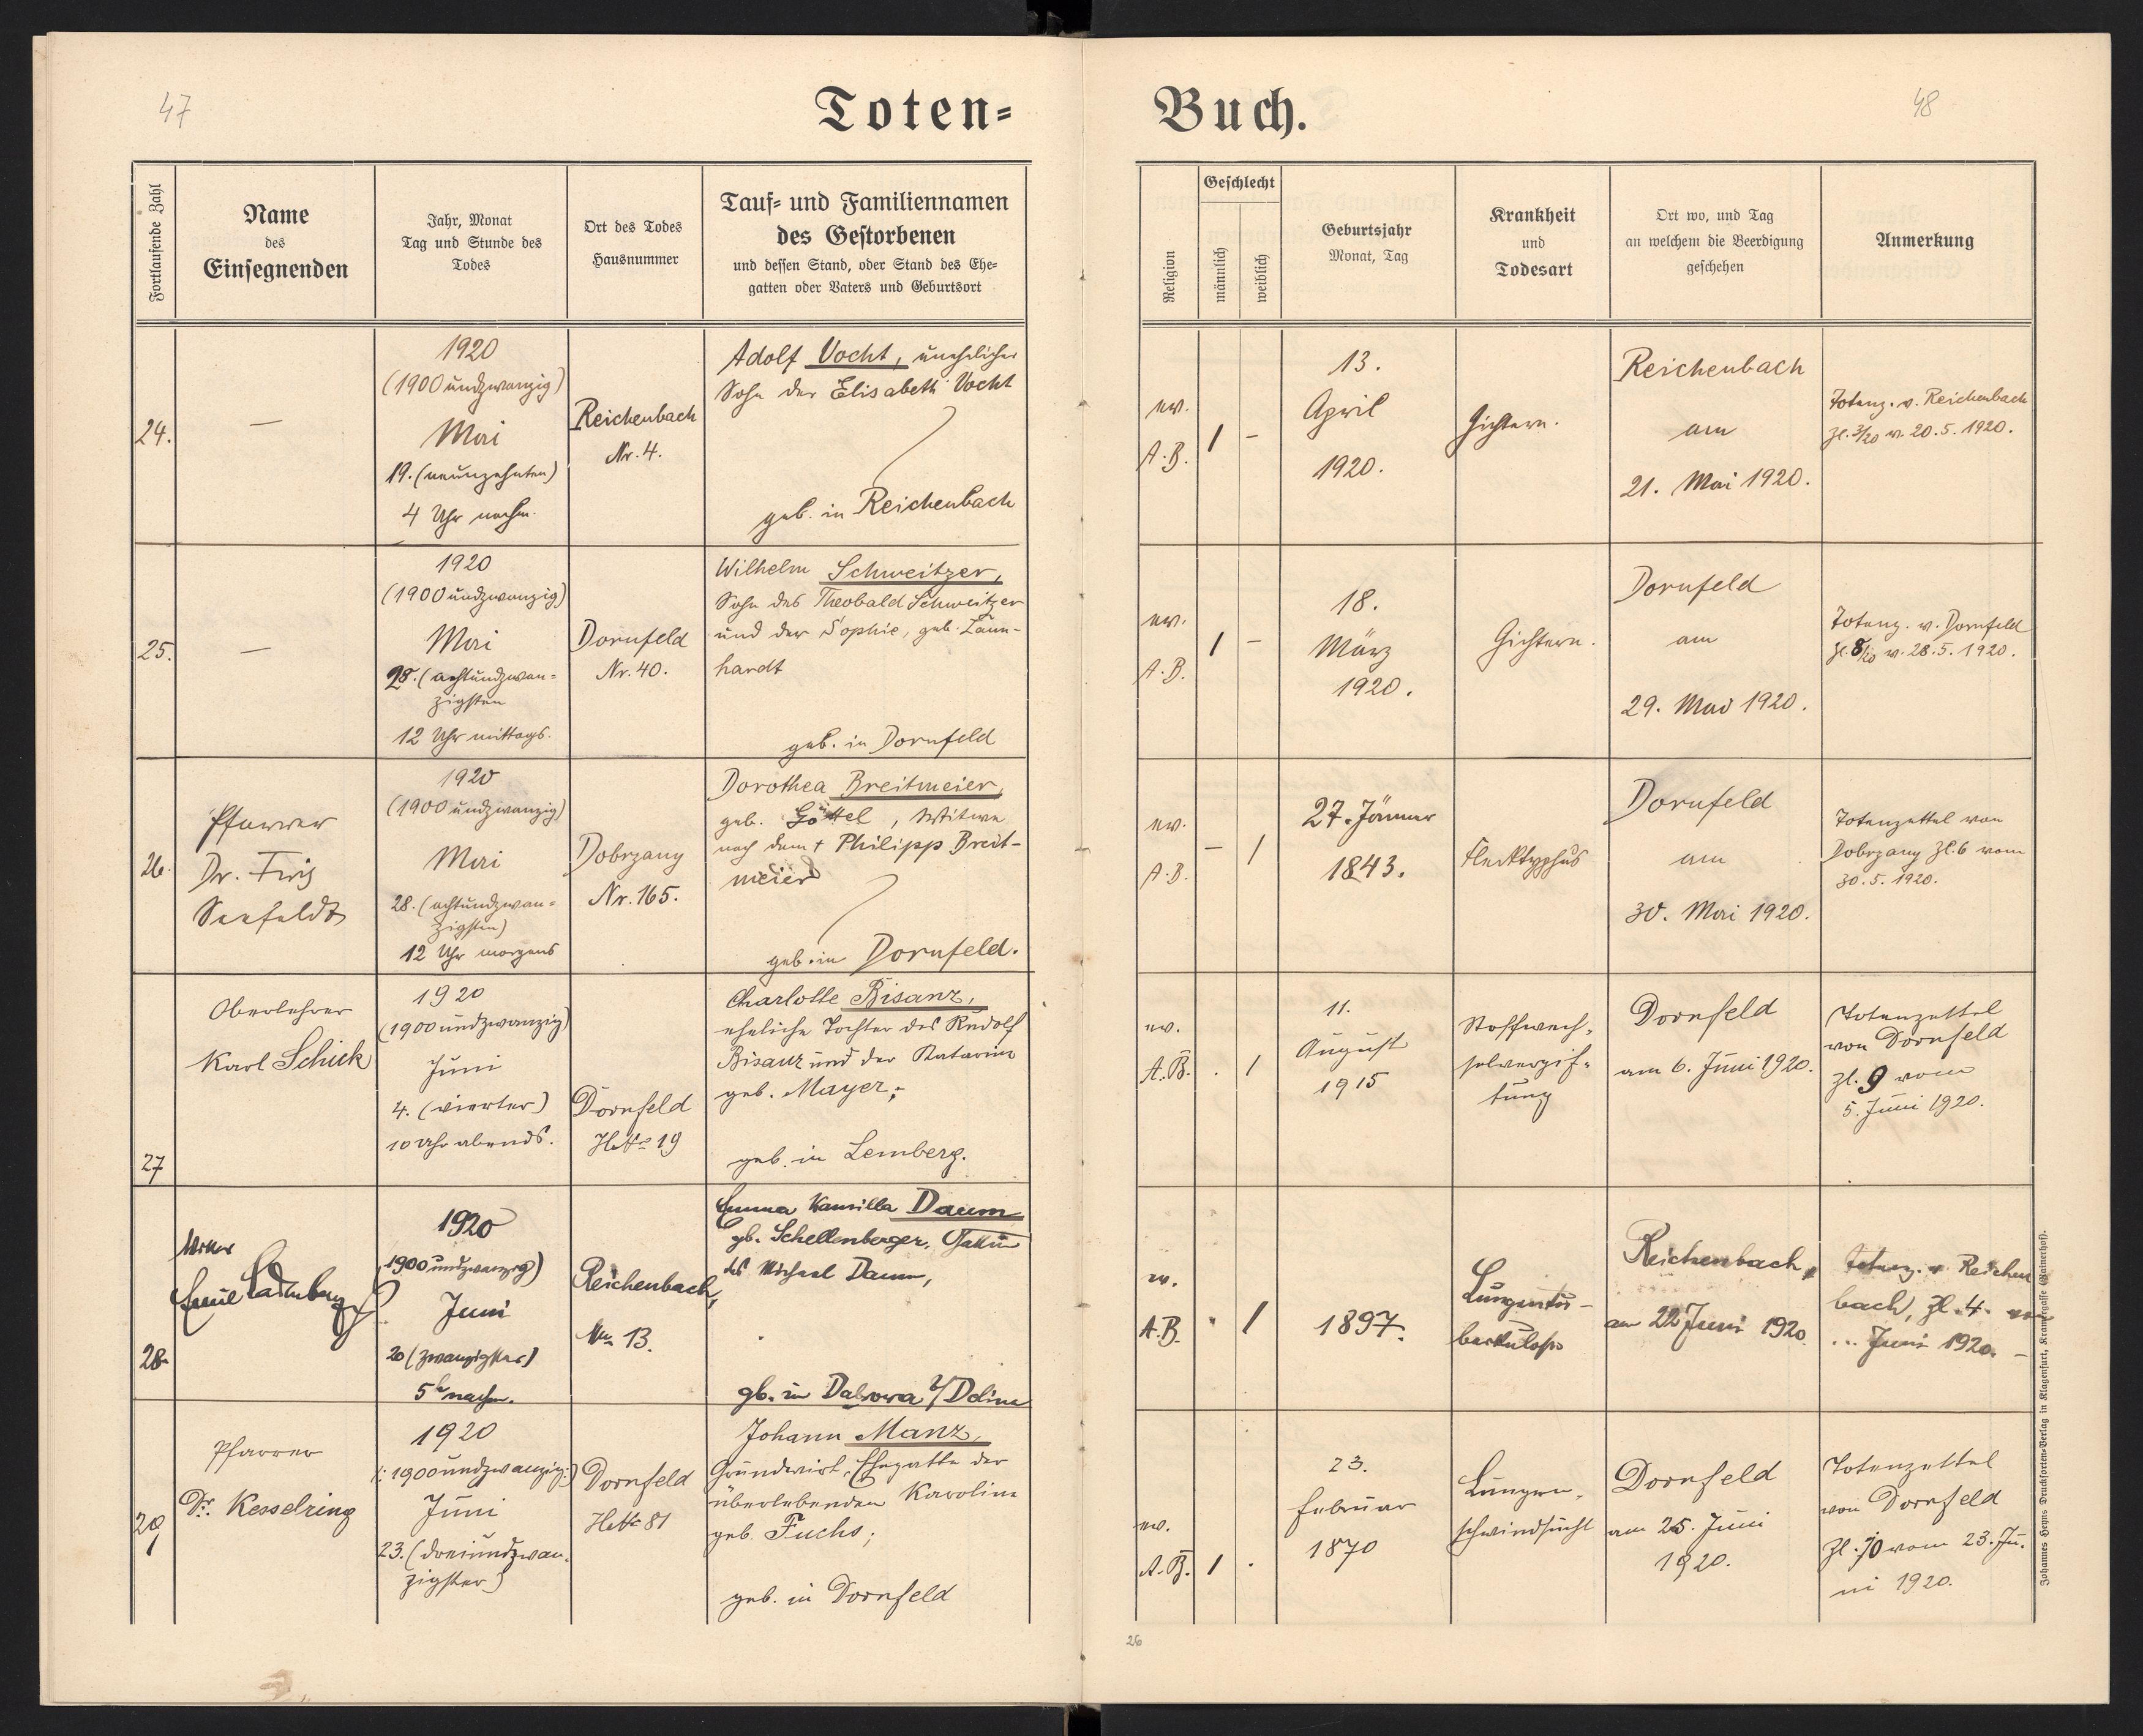 47
Toten-
Buch.
48
Fortlaufende Zahl
Name
des
Einsegnenden
Jahr, Monat
Tag und Stunde des
Todes
Ort des Todes
Hausnummer
Tauf- und Familiennamen
des Gestorbenen
und dessen Stand, oder Stand des Ehe-
gatten oder Vaters und Geburtsort
Religion
Geschlecht
männlich
weiblich
Geburtsjahr
Monat, Tag
Krankheit
und
Todesart
Ort wo, und Tag
an welchem die Beerdigung
geschehen
Anmerkung
24.
—
1920
(1900 undzwanzig)
Mai
19. (neunzehnten)
4 Uhr nachm.
Reichenbach
Nr. 4.
Adolf Vocht, unehelicher
Sohn der Elisabeth Vocht
geb. in Reichenbach
ev.
A.B.
1 –
13.
April
1920.
Gichtern.
Reichenbach
am
21. Mai 1920.
Totenz. v. Reichenbach
Zl. 3/20 v. 20.5.1920.
25.
—
1920
(1900 undzwanzig)
Mai
28. (achtundzwan-
zigsten
12 Uhr mittags.
Dornfeld
Nr. 40.
Wilhelm Schweitzer,
Sohn des Theobald Schweitzer
und der Sophie, geb.
hardt
geb. in Dornfeld
ev.
A.B.
1 –
18.
März
1920.
Gichtern.
Dornfeld
am
29. Mai 1920.
Totenz. v. Dornfeld
Zl. 8/20 v. 28.5.1920.
26.
Pfarrer
Dr. Friz
Seefeldt
1920
(1900 undzwanzig)
Mai
28. (achtundzwan-
zigsten)
12 Uhr morgens
Dobrzany
Nr. 165.
Dorothea Breitmeier,
geb. Göttel, Witwe
nach dem † Philipp Breit-
meier
geb. in Dornfeld.
ev.
A.B.
– 1
27. Jänner
1843.
Flecktyphus
Dornfeld
am
30. Mai 1920.
Totenzettel von
Dobrzany Zl. 6 vom
30.5.1920.
27
Oberlehrer
Karl Schick
1920
(1900 undzwanzig)
Juni
4. (vierter)
10 Uhr abends.
Dornfeld
19
Charlotte Bisanz,
eheliche Tochter des Rudolf
Bisanz und der Katarina
geb. Mayer;
geb. in Lemberg.
ev.
A.B.
. 1
11.
August
1915
Stoffwech-
selvergif-
tung
Dornfeld
am 6. Juni 1920.
Totenzettel
von Dornfeld
Zl. 9 vom
5. Juni 1920.
28.
Vikar
Emil Ladenberger
1920
1900 undzwanzig)
Juni
20 (zwanzigster)
5h nachm.
Reichenbach,
13.
Emma Kamilla Daum
gb. Schellenberger, Gattin
des Michael Daum,
gb. in Debowa
ev.
A.B.
. 1
1897.
Lungentu-
berkulose
Reichenbach,
am 22 Juni 1920
Totenz. v Reichen
bach, Zl. 4. vom
... Juni 1920. –
29
Pfarrer
Dr. Kesselring
1920
(: 1900 undzwanzig:)
Juni
23. (dreiundzwan-
zigster)
Dornfeld
81
Johann Manz,
Grundwirt, Ehegatte der
überlebenden Karolina
geb. Fuchs;
geb. in Dornfeld
ev.
A.B.
1 .
23.
Februar
1870
Lungen-
schwindsucht
Dornfeld
am 25. Juni
1920.
Totenzettel
von Dornfeld
Zl. 10 vom 23. Ju-
ni 1920.
26
Johannes Heyns Drucksorten-Verlag in Klagenfurt, Kramergasse (Mainerhof).